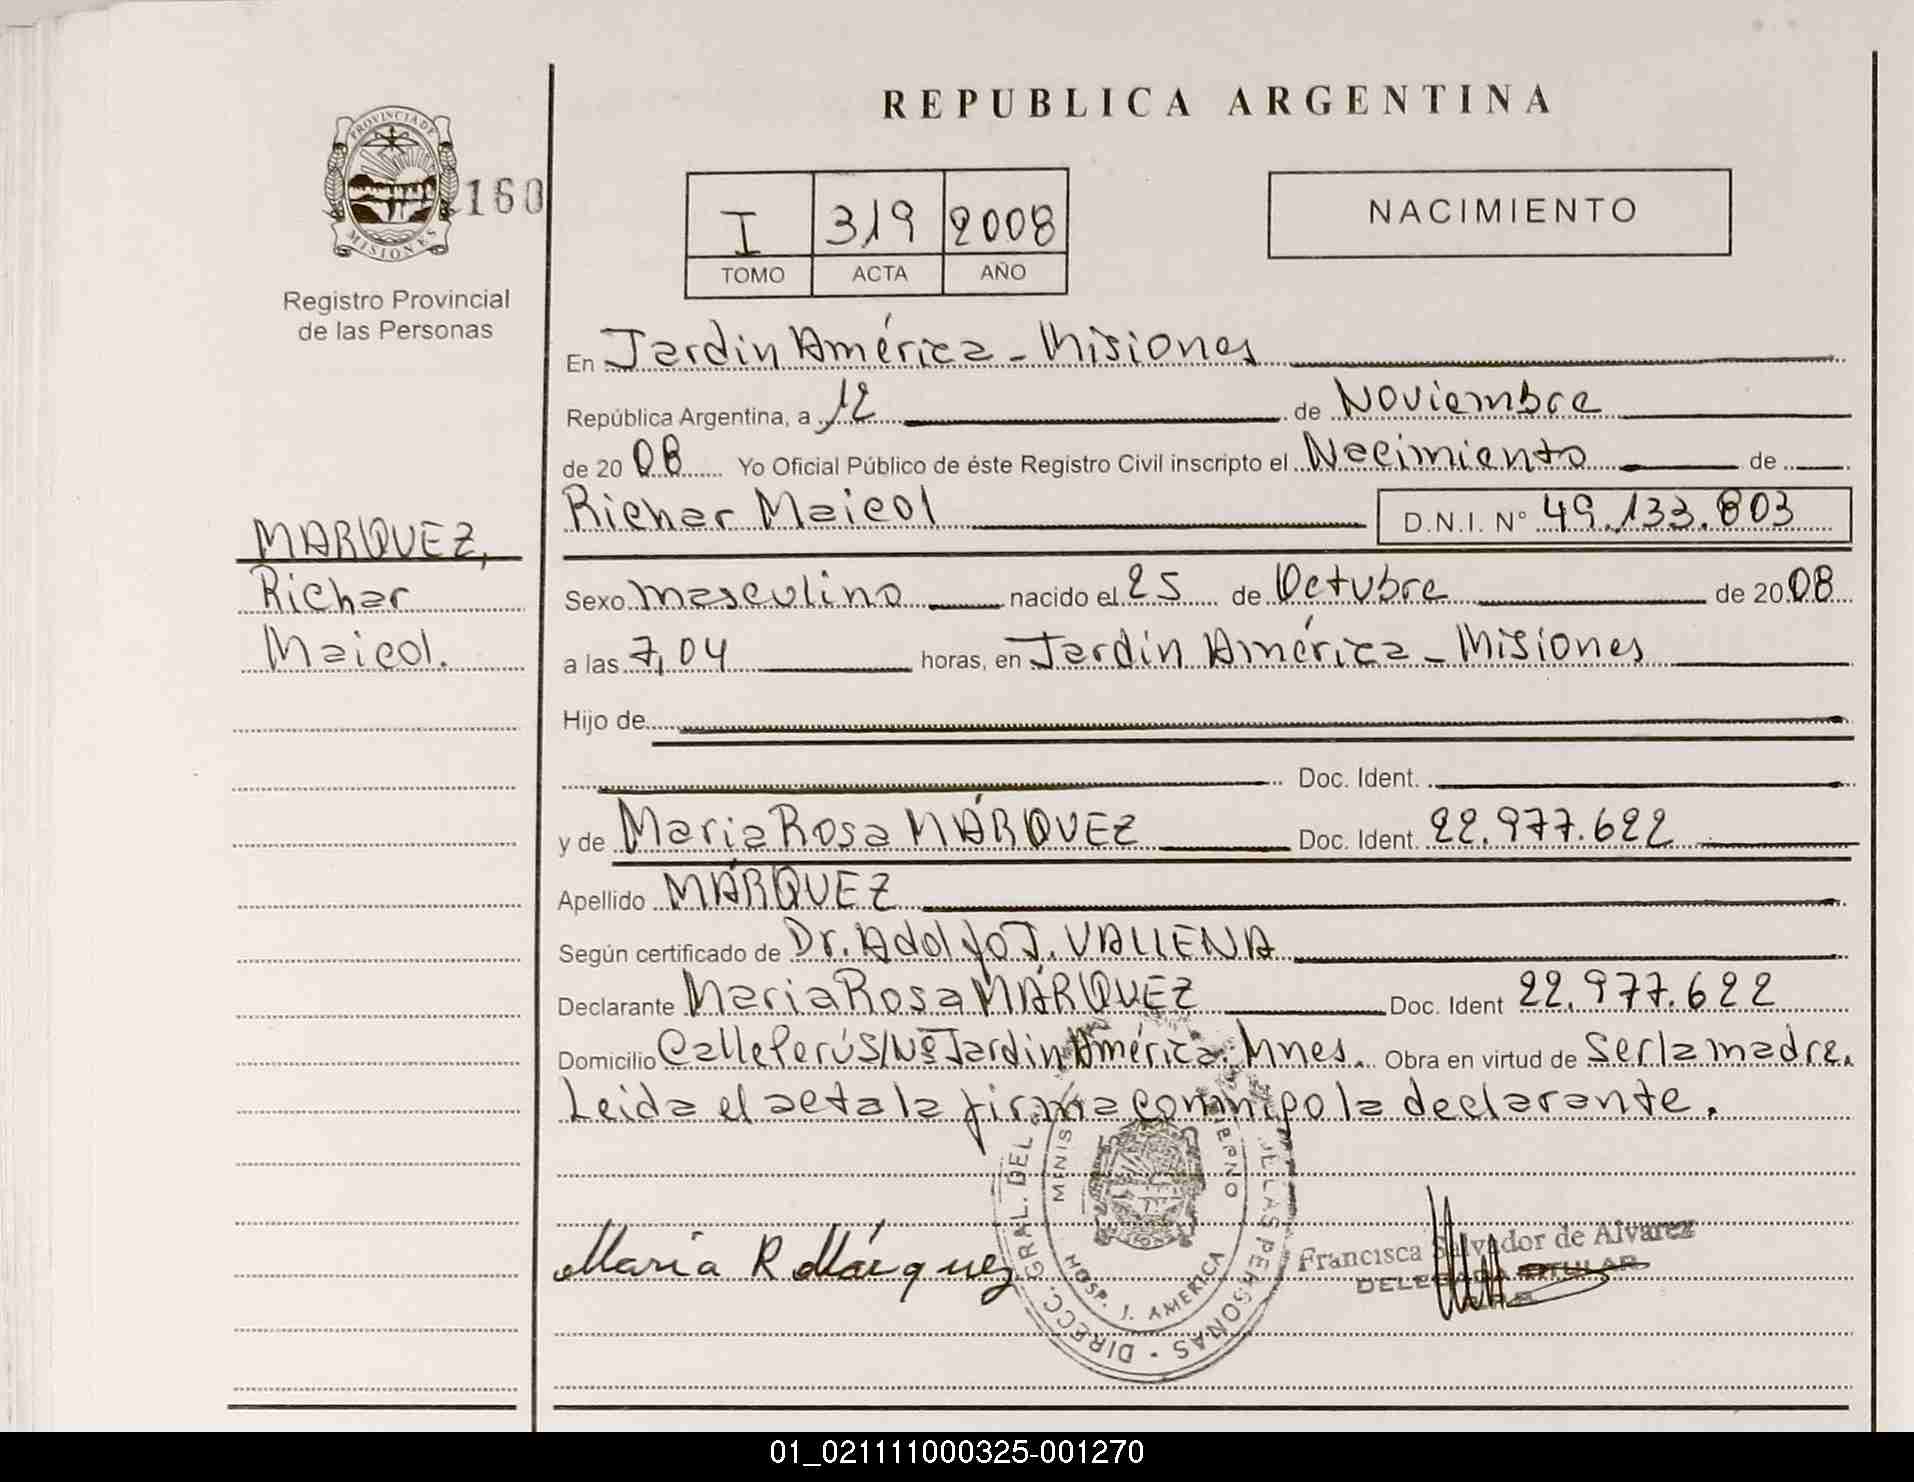 REPUBLICA ARGENTINA
PROVINCIA DE MISIONES
160
Registro Provincial
de las Personas
I 319 2008
TOMO ACTA AÑO
NACIMIENTO
En Jardín América - Misiones
República Argentina, a 12 de Noviembre
de 2008 Yo Oficial Público de éste Registro Civil inscripto el Nacimiento de
Richar Maicol D.N.I. N° 49.133.803
MARQUEZ,
Richar
Maicol.
Sexo masculino nacido el 25 de Octubre de 2008
a las 7,04 horas, en Jardín América - Misiones
Hijo de
Doc. Ident.
y de Maria Rosa MÁRQUEZ Doc. Ident. 22.977.622
Apellido MÁRQUEZ
Según certificado de Dr. Adolfo J. VALLENA
Declarante Maria Rosa MÁRQUEZ Doc. Ident 22.977.622
Domicilio Calle Perú S/Nº Jardín América. Mnes. Obra en virtud de Ser la madre.
Leida el acta la firma conmigo la declarante.
María R Márquez
DIRECC. GRAL. DEL DE LAS PERSONAS
HOSP. J. AMERICA
Francisca Salvador de Alvarez
DELEGADA TITULAR
01_021111000325-001270